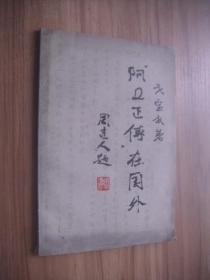 戈宝权著
阿Q正传在国外
周建人题